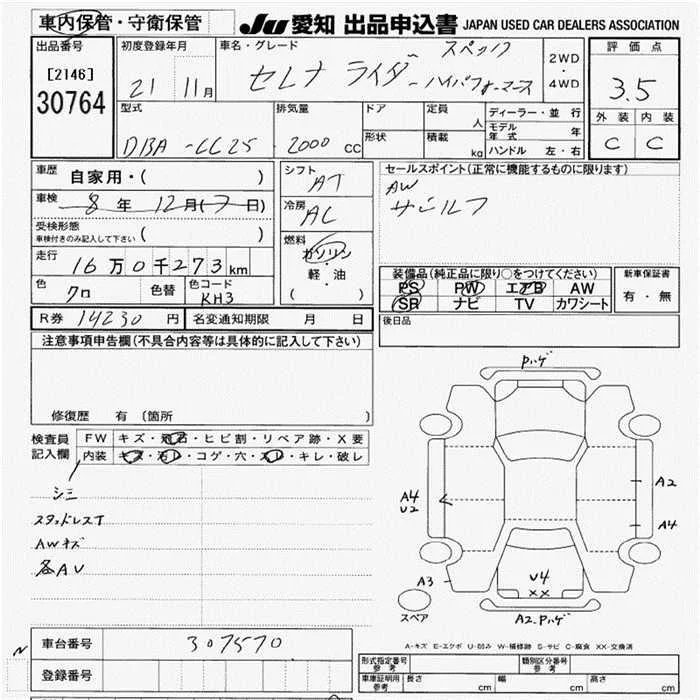 車内保管・守衛保管
JU 愛知 出品申込書 JAPAN USED CAR DEALERS ASSOCIATION
出品番号 初度登録年月 車名・グレード 評価点
[2146] 30764
21 11月
セレナ ライダー ハイパフォーマンス スペック
2WD・4WD
3.5
外装 内装
C C
型式 排気量 ドア 定員 人 ディーラー・並行
DBA-CC25 2000 CC
形状 積載 kg モデル年式 年
ハンドル 左・右
車歴 自家用・( )
車検 8年 12月(7日)
受検形態 車検付きのみ記入して下さい ( )
走行 16万0千273km
色 クロ 色替 色コード KH3
シフト AT
冷房 AC
燃料 ガソリン・軽・油 ( )
セールスポイント(正常に機能するものに限ります)
AW
サンルーフ
装備品(純正品に限り○をつけてください) 新車保証書
PS PW エアB AW 有・無
SR ナビ TV カワシート
R券 14230 円 名変通知期限 月 日
後日品
注意事項申告欄(不具合内容等は具体的に記入して下さい)
修復歴 有 (箇所 )
検査員記入欄
FW キズ・飛石・ヒビ割・リペア跡・X要
内装 キズ・汚レ・コゲ・穴・スレ・キレ・破レ
シミ
スタッドレスT
AWキズ
各AU
Pハゲ
A4
U2
A2
A4
A3
U4
××
A2.Pハゲ
スペア
A-キズ E-エクボ U-凹み W-補修跡 S-サビ C-腐食 XX-交換済
N
車台番号 307570
登録番号
形式指定番号 参考 類別区分番号 参考
車庫証明用 参考 長さ cm 幅 cm 高さ cm